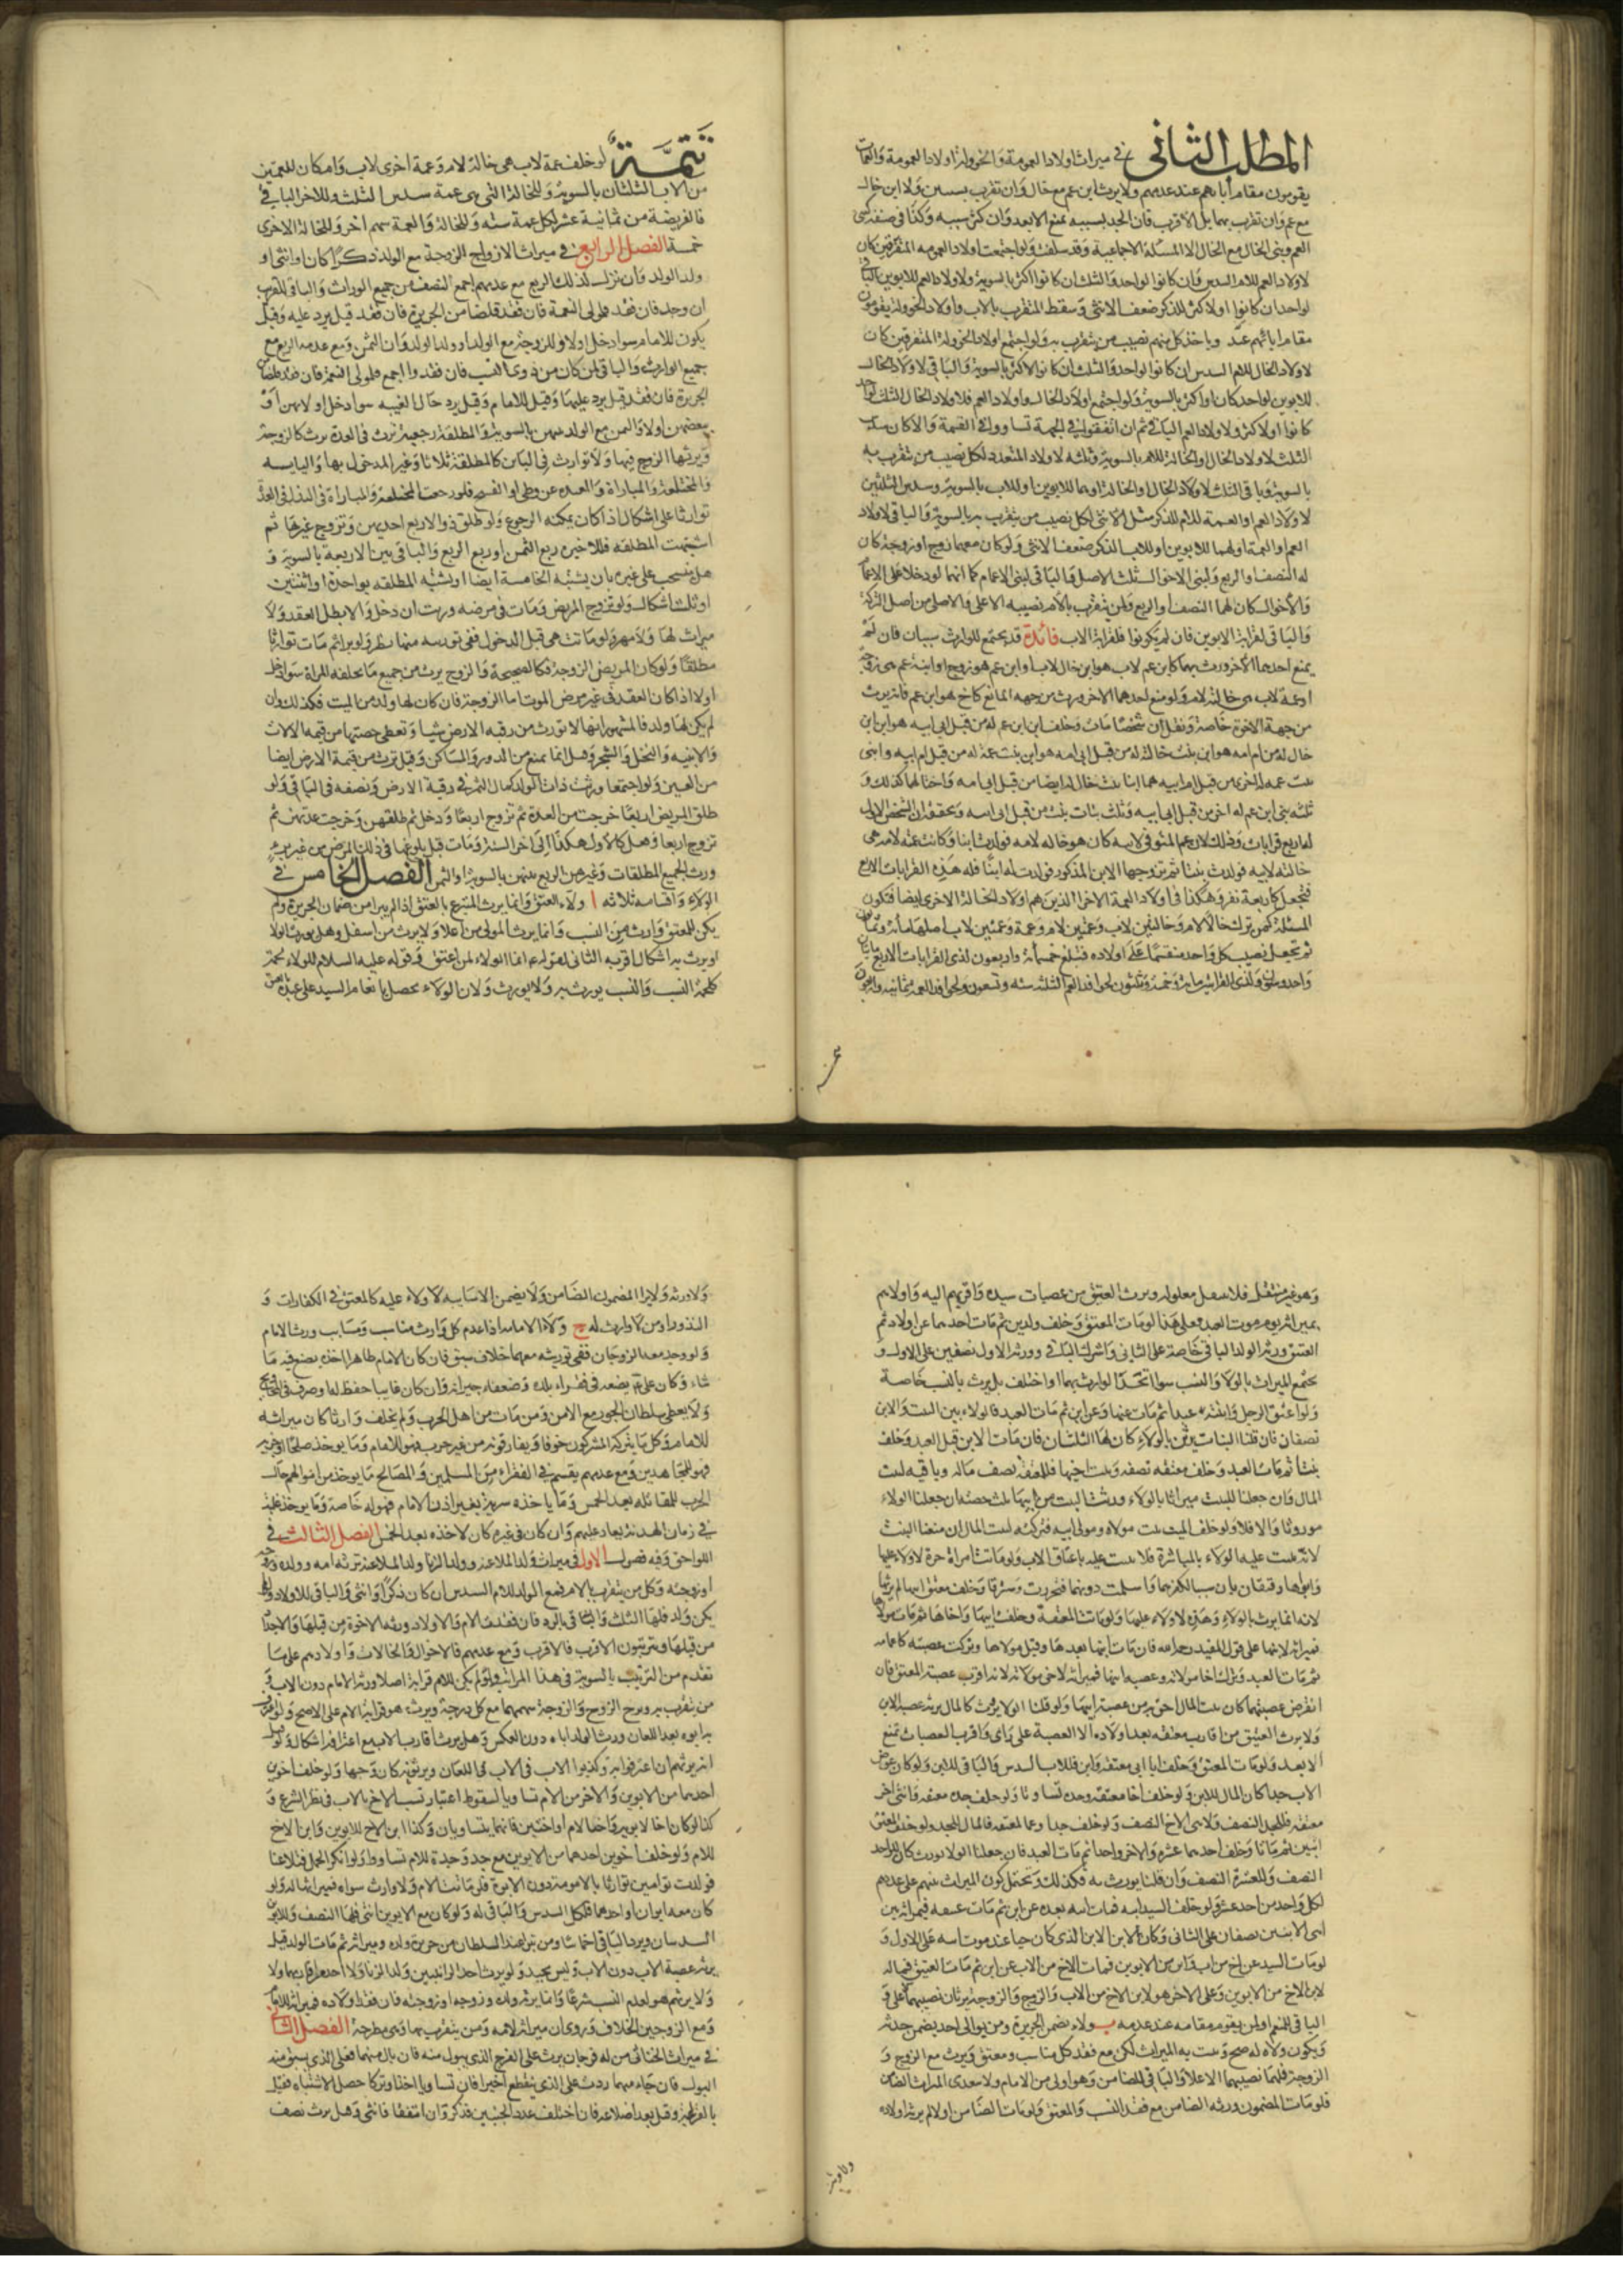 المطلب الثاني في ميراث اولاد العمومة والخولة اولاد العمومة والعمات
يقومون مقام آبائهم عند عدمهم ولا يرث ابن عم مع خال وان تقرب بسببين ولا ابن خال
مع عم وان تقرب بهما بل الاقرب فان اتحد بسببه يمنع الابعد وان كثر سببه وكذا في صنفه كبني
العم وبني الخال مع الخال الا المسئلة الاجماعية وقد سلفت ولو اجتمعت اولاد العمومه المتفرقين كان
لاولاد العم للام السدس وان كانوا لواحد والثلث ان كانوا اكثر بالسوية ولاولاد العم للابوين الباقي
لواحد ان كانوا او لاكثر للذكر ضعف الانثى وسقط المتقرب بالاب واولاد الخولة يقومون
مقام ابائهم وياخذ كل منهم نصيب من يتقرب به ولو اجتمع اولاد الخولة المتفرقين كان
لاولاد الخال للام السدس ان كانوا لواحد والثلث ان كانوا لاكثر بالسوية والباقي لاولاد الخال
للابوين لواحد كان او اكثر بالسوية ولو اجتمع اولاد الخال واولاد العم فلاولاد الخال الثلث
كانوا او لاكثر ولاولاد العم الباقي ثم ان اتفقوا في الجهة تساووا في القسمة والا كان سدس
الثلث لاولاد الخال او الخالة للام بالسوية وثلثه لاولاد المتعدد لكل نصيب من يتقرب به
بالسوية وباقي الثلث لاولاد الخال او الخالة او هما للابوين او للاب بالسوية وسدس الثلثين
لاولاد العم او العمة للام للذكر مثل الانثى لكل نصيب من يتقرب به بالسوية والباقي لاولاد
العم او العمة او لهما للابوين او للاب للذكر ضعف الانثى ولو كان معهما زوج او زوجة كان
له النصف او الربع ولبني الاخوال ثلث الاصل والباقي لبني الاعمام كما انهما لو دخلا على الاعمام
والاخوال كان لهما النصف او الربع ولمن يتقرب بالام نصيبه الاعلى والاصلي من اصل التركة
والباقي لقرابة الابوين فان لم يكونوا فلقرابة الاب فائدة قد يجتمع للوارث سببان فان لم
يمنع احدهما الآخر ورث بهما كابن عم لاب هو ابن خال لاب او ابن عم هو زوج او ابنة عم هي زوجة
او عمة لاب هي خالة لام ولو منع احدهما الاخر ورث من جهه المانع كاخ هو ابن عم فانه يرث
من جهة الاخوة خاصة ونقل ان شخصا مات وخلف ابن ابن عم له من قبل ابي ابيه هو ابن ابن
خال له من ام امه هو ابن بنت خالة له من قبل ابي امه هو ابن بنت عمة له من قبل ام ابيه وابني
بنت عمه له اخرى من قبل ام ابيه هما ابنا بنت خال له ايضا من قبل ابي امه واختا لهما كذلك و
ثلثه بني ابن عم له اخر من قبل ابي ابيه وثلث بنات بنت من قبل ابي ابيه الشخص الاول
له اربع قرابات وذلك لان عم المتوفى لابيه كان هو خاله لامه فولدت ابنا وكانت عمته لامه هي
خالته لابيه فولدت بنتا ثم تزوجها الابن المذكور فولدت له ابنا فله هذه القرابات الاربع
فتجعل كاربعة نفر وهكذا في اولاد العمة الاخرا الذين هم اولاد الخالة الاخرى ايضا فتكون
المسئلة كمن ترك خالا لام وخالتين لاب وعمتين لام وعمة وعمتين لاب اصلها مائة وثمانون
ثم تجعل نصيب كل واحد منقسما على اولاده فتبلغ خمسمائة واربعون لذي القرابات الاربع مائتان
تتمة لو خلف عمة لاب هي خالة لام وعمة اخرى لاب وام كان للعمتين
من الاب الثلثان بالسوية وللخالة التي هي عمة سدس الثلث وللاخرى الباقي
فالفريضة من ثمانية عشر لكل عمة سته وللخالة والعمة سهم اخر وللخالة الاخرى
خمسة الفصل الرابع في ميراث الازواج للزوجة مع الولد ذكرا كان او انثى او
ولد الولد وان نزل كذلك الربع مع عدمهم اجمع النصف من جميع الوراث والباقي للقريب
ان وجد فان فقد فلمولى النعمة فان فقد فلضامن الجريرة فان فقد قيل يرد عليه وقيل
يكون للامام سوا دخل او لا وللزوجة مع الولد او ولد الولد وان الثمن ومع عدمه الربع مع
جميع الوارث والباقي لمن كان من ذوي النسب فان فقدوا اجمع فلمولى النعمة فان فقد فلضامن
الجريرة فان فقد قيل يرد عليها وقيل للامام وقيل يرد حال الغيبه سوا دخل او لا
وبعضهن اولا والثمن مع الولد بينهن بالسوية والمطلقة رجعية ترث في العدة يرث كالزوجة
ويرثها الزوج فيها ولا توارث في الباين كالمطلقة ثلاثا وغير المدخول بها واليايسه
والمختلعة والمباراة والمعتدة عن وطي او الفسخ فلو رجعت المختلعة والمباراة في البذل في العدة
توارثا على اشكال اذا كان يمكنه الرجوع ولو طلق ذو الاربع احديهن وتزوج غيرها ثم
اشتبهت المطلقه فللاخيرة ربع الثمن او ربع الربع والباقي بين الاربعة بالسوية و
هل ينسحب على غيره بان يشتبه الخامسة ايضا او يشتبه المطلقه بواحدة او اثنتين
او ثلث اشكال ولو تزوج المريض ومات في مرضه ورثت ان دخل والا بطل العقد ولا
ميراث لها ولا مهر ولو ماتت هي قبل الدخول ففي توريثه منها نظر ولو برا ثم مات توارثا
مطلقا ولو كان المريض الزوجة فكالصحيحة والزوج يرث من جميع ما تخلفه المراة سوا دخل
اولا اذا كان العقد في غير مرض الموت اما الزوجة فان كان لها ولد من الميت فكذلك وان
لم يكن لها ولد فالمشهور انها لا تورث من رقبه الارض شيئا وتعطى حصتها من قيمة الالات
والابنيه والنخل والشجر وقيل انما تمنع من الدور والمساكن وقيل ترث من قيمة الارض ايضا
من العين ولو اجتمعا ورثت ذات الولد كمال الثمن في رقبة الارض ونصفه في الباقي ولو
طلق المريض اربعا خرجت من العدة ثم تزوج اربعا ودخل ثم طلقهن وخرجت عدتهن ثم
تزوج اربعا وفعل كالاول هكذا الى اخر السنة ومات قبل بلوغها في ذلك المرض من غير برء
ورث الجميع المطلقات وغيرهن الربع بينهن بالسوية او الثمن الفصل الخامس في
الولاء واقسامه ثلاثه ا ولاء العتق وانما يرث المتبرع بالعتق اذا لم يبرا من ضمان الجريرة ولم
يكن للمعتق وارث من النسب وانما يرث المولى من اعلا ولا يرث من اسفل وهل يورث الولا
او يورث به اشكال اقربه الثاني لقوله انما الولاء لمن اعتق وقوله عليه السلام الولاء لحمة
كلحمة النسب والنسب يورث به ولا يورث ولان الولاء يحصل بانعام السيد على عبده
وهو غير منتقل فلا ينتقل معلوله ويرث العتيق من عصبات سيده واقربهم اليه واولاهم
بميراثه يوم موت العبد فعلى هذا لو مات المعتق وخلف ولدين ثم مات احدهما عن اولاد ثم
العتيق ورثه الولد الباقي خاصة على الثاني واشترك الباقي وورثة الاول نصفين على الاول و
يجتمع الميراث بالولاء والنسب سوا اتحد الوارث بهما او اختلف بل يرث بالنسب خاصة
ولو اعتق الرجل وابنته عبدا ثم مات عنها وعن ابن ثم مات العبد فالولاء بين البنت والابن
نصفان فان قلنا البنات يرثن بالولاء كان لها الثلثان فان مات الابن قبل العبد وخلف
بنتا ثم مات العبد وخلف معتقه نصفه وبنت اخيها فللمعتقة نصف ماله وباقيه لبيت
المال وان جعلنا للبنت ميراثا بالولاء ورثت البنت من ابيها ثلث حصته ان جعلنا الولاء
موروثا والا فلا ولو خلف الميت بنت مولاه ومولى ابيه فتركته لبيت المال ان منعنا البنت
لانه ثبت عليه الولاء بالمباشرة فلا يثبت عليه باعتاق الاب ولو ماتت امراة حرة لا ولاء عليها
وابواها رقيقان بان سبا الكفرهما واسلمت دونهما فتحررت واسترقا وخلفت معتق ابيها لم يرثها
لانه انما يرث بالولاء وهذه لا ولاء عليها ولو ماتت المعتقة وخلفت ابنها واخاها ثم مات مولاها
فميراثه لابنها على قول المفيد رحمه الله فان مات ابنها بعدها وقبل مولاها وتركت عصبته كاعمامه
ثم مات العبد وترك اخا مولاته وعصبه ابنها فميراثه لاخي مولاته لانه اقرب عصبة المعتق فان
انقرض عصبتها كان بيت المال احق به من عصبة ابنها ولو قلنا الولاء يورث كالمال يرثه عصبه الابن
ولا يرث العتيق من اقارب معتقه بعد اولاده الا العصبة على راي واقرب العصبات تمنع
الابعد ولو مات المعتق وخلف ابا ابن معتقه وابن فللاب السدس والباقي للابن ولو كان عوض
الاب جدا كان المال للابن ولو خلف اخا معتقه وجده تساويا ولو خلف جده معتقه وابني اخي
معتقه فللجد النصف ولابني الاخ النصف ولو خلف جدا وعما لمعتقه فالمال للجد ولو خلف المعتق
ابنين ثم ماتا وخلف احدهما عشره والاخر واحدا ثم مات العبد فان جعلنا الولا يورث كان للواحد
النصف وللعشرة النصف وان قلنا يورث به فكذلك وتحتمل كون الميراث بينهم على عددهم
لكل واحد من احد عشر ولو خلف السيد ابنه فمات ابنه بعده عن ابن ثم مات عتيقه فميراثه بين
ابني الابنين نصفان على الثاني وكان لابن الابن الذي كان حيا عند موت ابيه على الاول و
لو مات السيد عن اخ من اب وابن اخ من الابوين فمات الاخ من الاب عن ابن ثم مات العتيق فماله
لابن الاخ من الابوين وعلى الاخر هو لابن الاخ من الاب والزوج والزوجة يرثان نصيبهما الاعلى و
الباقي للمنعم او لمن يقوم مقامه عند عدمه ب ولاء تضمن الجريرة ومن يوالي احد يضمن حدثه
ويكون ولاه له صح ويثبت به الميراث لكن مع فقد كل مناسب ومعتق ويرث مع الزوج و
الزوجة فلهما نصيبهما الاعلا والباقي للضامن وهو اولى من الامام ولا يتعدى الميراث الضامن
فلو مات المضمون ورثه الضامن مع فقد النسب والمعتق ولو مات الضامن اولا لم يرثه اولاده
ولا ورثته ولا يرث المضمون الضامن ولا يضمن الا سايبه لا ولاء عليه كالمعتق في الكفارات و
النذور او من لا وارث له ج ولاء الامامة اذا عدم كل وارث مناسب ومسابب ورث الامام
ولو وجد معه الزوجان ففي توريثه معهما خلاف سبق فان كان الامام ظاهرا اخذه يصنع فيه ما
شاء وكان علي يضعه في فقراء بلده وضعفاء جيرانه وان كان غايبا حفظ له او صرف في المحاويج
ولا يعطى سلطان الجور مع الامن ومن مات من اهل الحرب ولم يخلف وارثا كان ميراثه
للامام وكل ما يتركه المشركون خوفا ويفارقونه من غير حرب فهو للامام وما يوخذ صلحا او جزية
فهو للمجاهدين ومع عدمهم يقسم في الفقراء من المسلمين والمصالح وما يوخذ من اموالهم حال
الحرب للمقاتله بعد الخمس وما ياخذه سرية بغير اذن الامام فهو له خاصة وما يوخذ غيلة
في زمان الهدنة يعاد عليهم وان كان في غيره كان لاخذه بعد الخمس الفصل الثالث في
اللواحق وفيه فصول الاول في ميراث ولد الملاعنه وولد الزنا ولد الملاعنة ترثه امه وولده وزوجه
او زوجته وكل من يتقرب بالام فمع الولد للام السدس ان كان ذكرا او انثى والباقي للاولاد ولو لم
يكن ولد فلها الثلث والباقي بالرد فان فقدت الام والاولاد ورثه الاخوة من قبلها والاجداد
من قبلها ويترتبون الاقرب فالاقرب ومع عدمهم فالاخوال والخالات واولادهم على ما
تقدم من الترتيب بالسوية في هذا المراتب ولو لم يكن للام قرابة اصلا ورثه الامام دون الاب و
من يتقرب به ويرث الزوج والزوجة سهمهما مع كل درجة ويرث هو قرابة الام على الاصح ولو اعترف
به ابوه بعد اللعان ورث الولد اباه دون العكس وهل يرث اقارب الاب مع اعترافه اشكال ولو قيل
انه يرثهم ان اعترفوا به وكذبوا الاب في اللعان ويرثونه كان وجها ولو خلف اخوين
احدهما من الابوين والاخر من الام تساويا لسقوط اعتبار نسب الاخ بالاب في نظر الشرع و
كذا لو كان اخا لابويه واختا لام او اختين فانهما يتساويان وكذا ابن الاخ للابوين وابن الاخ
للام ولو خلف اخوين احدهما من الابوين مع جد وجدة للام تساووا ولو انكر الحمل فتلاعنا
فولدت توامين توارثا بالامومة دون الابوة فلو ماتت الام ولا وارث سواه فميراثها له ولو
كان معه ابوان او احدهما فلكل السدس والباقي له ولو كان مع الابوين انثى فلها النصف وللابوين
السدسان ويرد الباقي اخماسا ومن تبرا عند السلطان من جريرة ولده وميراثه ثم مات الولد قيل
يرثه عصبة الاب دون الاب وليس بجيد ولو يرث احد الزانيين ولد الزنا ولا احد من اقاربهما ولا
ولا يرثهم هو لعدم النسب شرعا وانما يرثه ولده وزوجه او زوجته فان فقد اولاده فميراثه للامام
ومع الزوجين الخلاف وروي ان ميراثه لامه ومن يتقرب بها وهي مطرحة الفصل الثاني
في ميراث الخناثى من له فرجان يرث على الفرج الذي يبول منه فان بال منهما فعلى الذي يسبق منه
البول فان جاء منهما ورث على الذي ينقطع اخيرا فان تساويا اخذا وتركا حصل الاشتباه فقيل
بالقرعة وقيل بعد اضلاعه فان اختلف عدد الجنبين فذكر وان اتفقا فانثى وهل يرث نصف